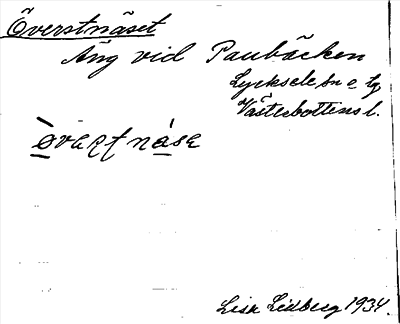 Överstnäset
Äng vid Paubäcken
Lycksele sn o lg
Västerbottens l.
Lisa Lidberg 1934.